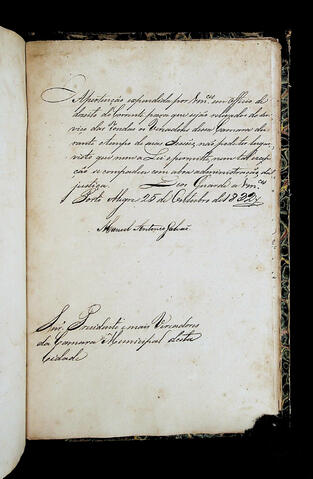 A pertenção expendida por Vm.ces em officio de
dezoito do Corrente para que sejão relevados do ser-
viço das rondas os Vereadores dessa Camara du-
rante o tempo de suas Sessões, não pode ter lugar,
visto que nem a Lei o permitte, nem tal exep-
ção se compadece com a boa administração da
justiça. Deos Guarde a Vm.ces
Porto Alegre 25 de Outubro de 1832
Manuel Antonio Galvão
Snr.es Presidente e mais Vereadores
da Camara Municipal desta
Cidade